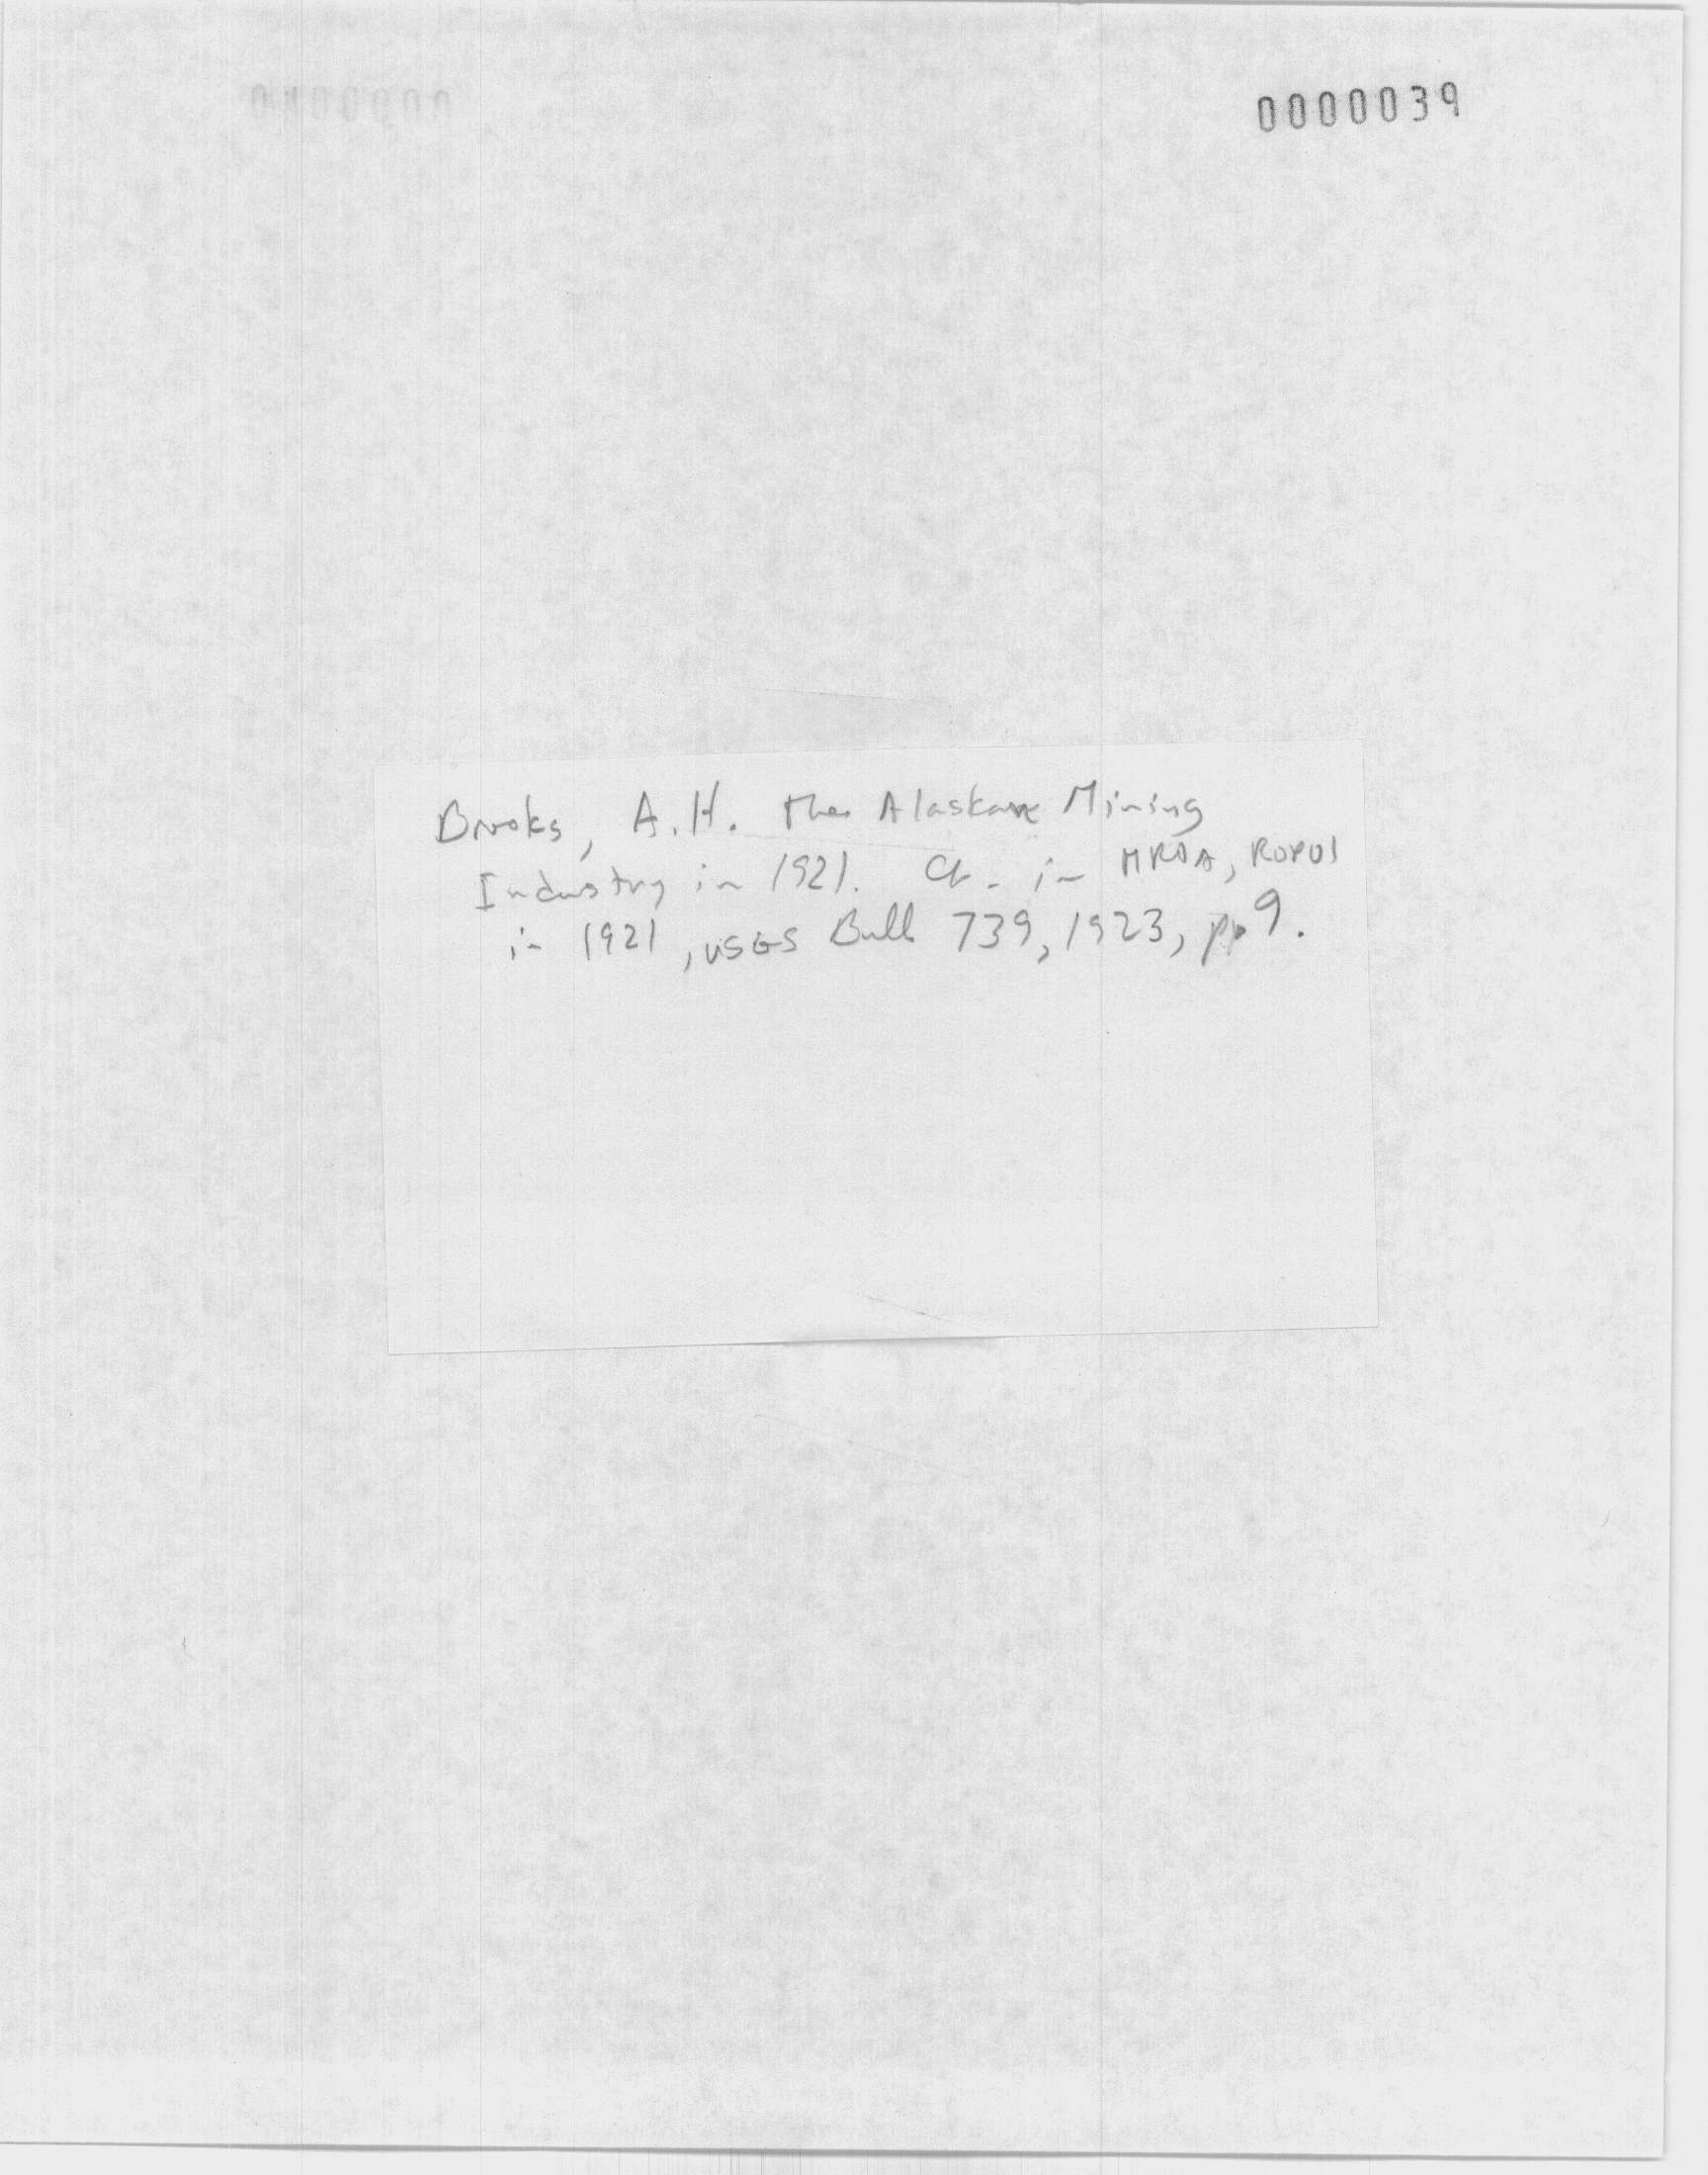 0000039
Brooks, A.H. The Alaskan Mining
Industry in 1921. Ch. in MROA, ROPOI
in 1921, USGS Bull 739, 1923, pp 9.